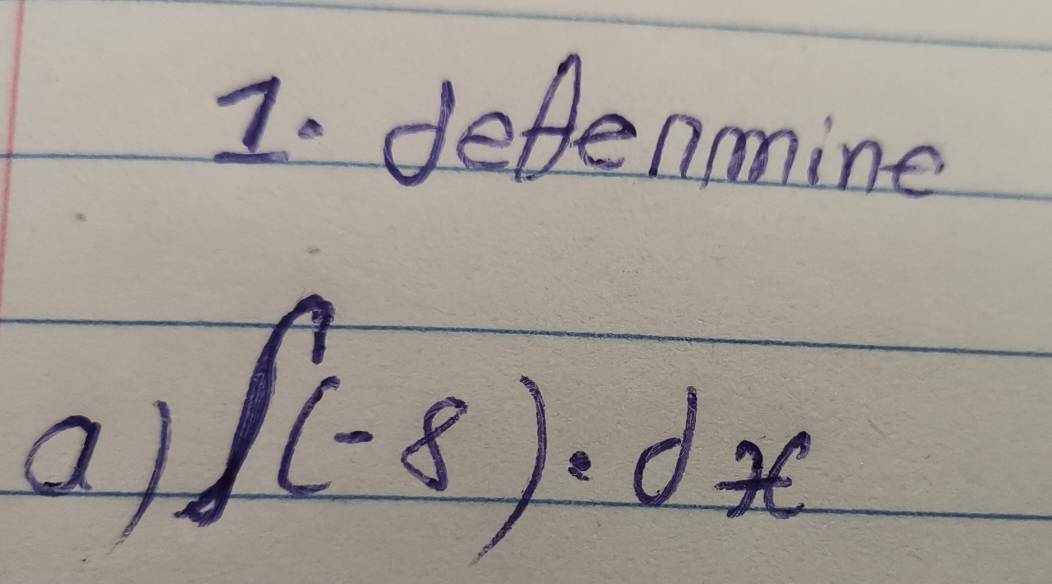 1. determine
a) ∫(-8)·dx